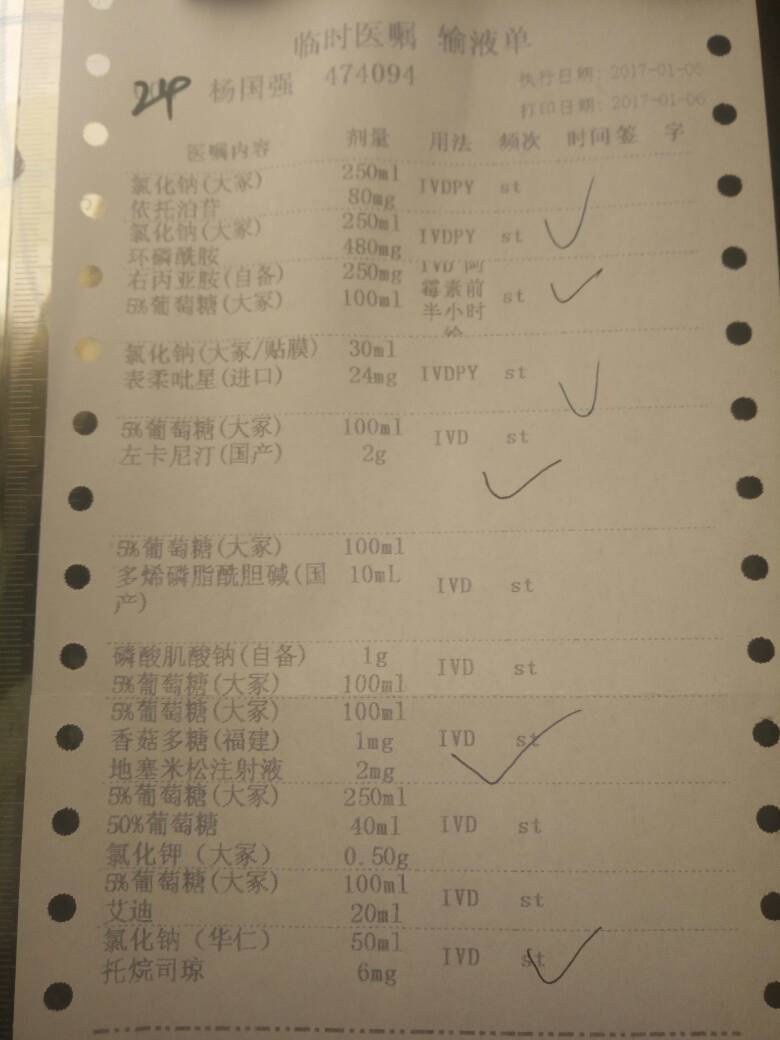 临时医嘱 输液单
24P 杨国强 474094 执行日期: 2017-01-06
打印日期: 2017-01-06
医嘱内容 剂量 用法 频次 时间签 字
氯化钠(大冢) 250ml IVDPY st
依托泊苷 80mg
氯化钠(大冢) 250ml IVDPY st
环磷酰胺 480mg
右丙亚胺(自备) 250mg IVD 阿
5%葡萄糖(大冢) 100ml 霉素前 st
半小时
氯化钠(大冢/贴膜) 30ml
表柔吡星(进口) 24mg IVDPY st
5%葡萄糖(大冢) 100ml IVD st
左卡尼汀(国产) 2g
5%葡萄糖(大冢) 100ml
多烯磷脂酰胆碱(国 10mL IVD st
产)
磷酸肌酸钠(自备) 1g IVD st
5%葡萄糖(大冢) 100ml
5%葡萄糖(大冢) 100ml
香菇多糖(福建) 1mg IVD st
地塞米松注射液 2mg
5%葡萄糖(大冢) 250ml
50%葡萄糖 40ml IVD st
氯化钾（大冢） 0.50g
5%葡萄糖(大冢) 100ml IVD st
艾迪 20ml
氯化钠（华仁） 50ml IVD st
托烷司琼 6mg